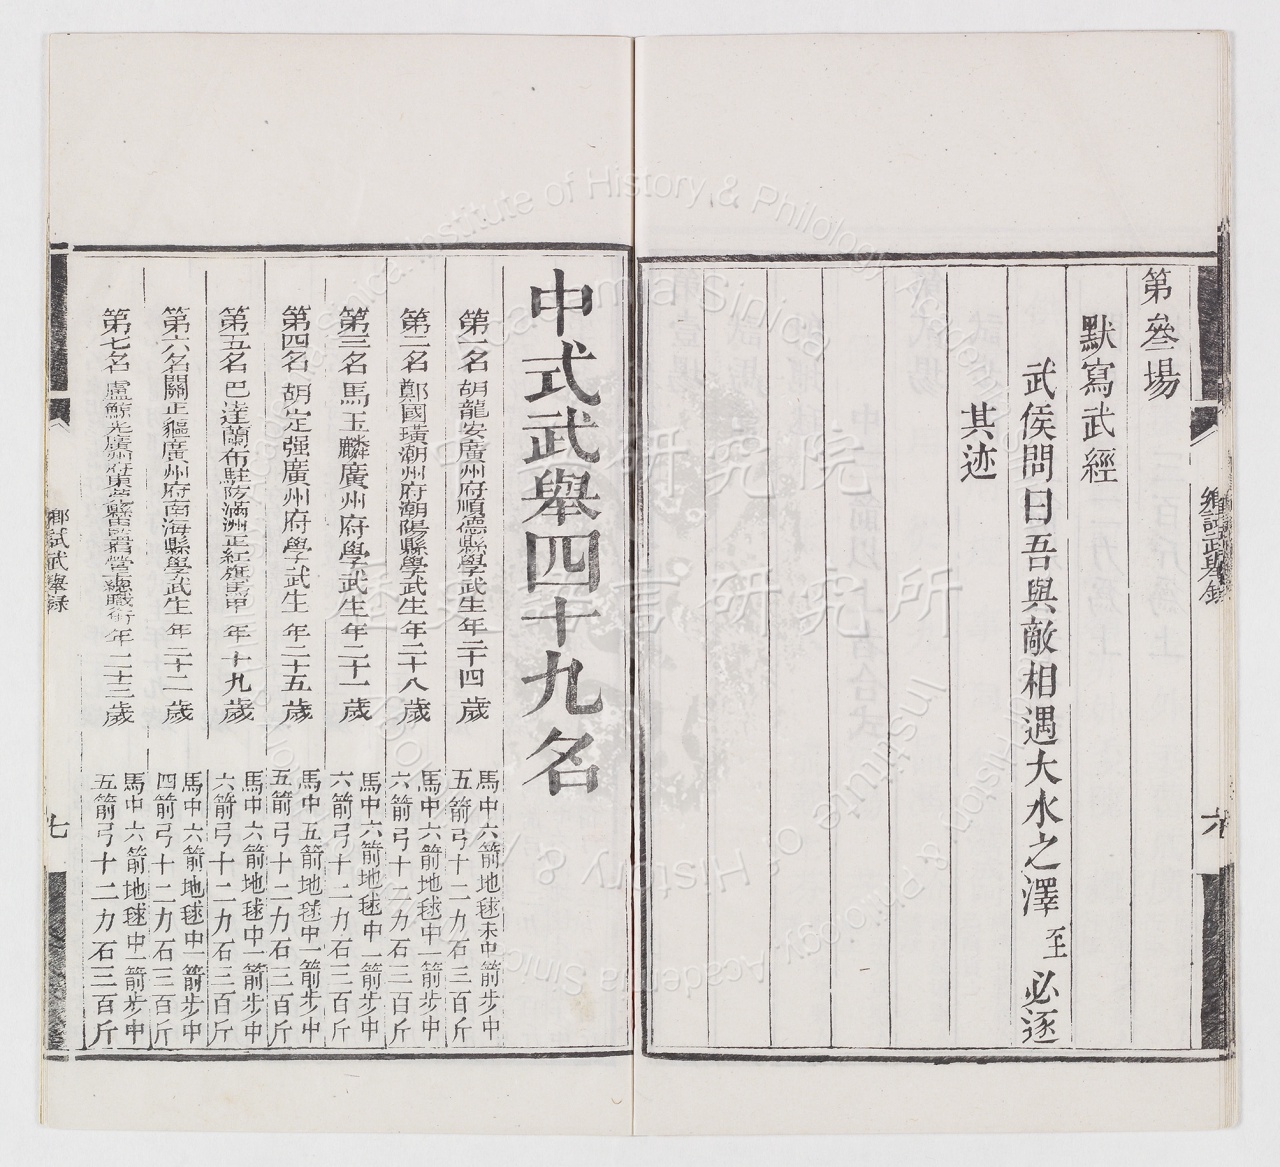 第叁場
默寫武經
武侯問曰吾與敵相遇大水之澤至必逐
其迹
鄉試武舉錄
六
中式武舉四十九名
第一名胡龍安廣州府順德縣學武生年二十四歲
馬中六箭地毬未中箭步中
五箭弓十二力石三百斤
第二名鄭國璜潮州府潮陽縣學武生年二十八歲
馬中六箭地毬中一箭步中
六箭弓十二力石三百斤
第三名馬玉麟廣州府學武生年二十一歲
馬中六箭地毬中一箭步中
六箭弓十二力石三百斤
第四名胡定强廣州府學武生年二十五歲
馬中五箭地毬中一箭步中
五箭弓十二力石三百斤
第五名巴達蘭布駐防滿洲正紅旗馬甲年十九歲
馬中六箭地毬中一箭步中
六箭弓十二力石三百斤
第六名關正樞廣州府南海縣學武生年二十二歲
馬中六箭地毬中一箭步中
四箭弓十二力石三百斤
第七名盧鯨光廣州府東莞縣督標營千總職銜年二十三歲
馬中六箭地毬中一箭步中
五箭弓十二力石三百斤
鄉試武舉録
七
中央研究院
歷史語言研究所
Institute of History & Philology Academia Sinica